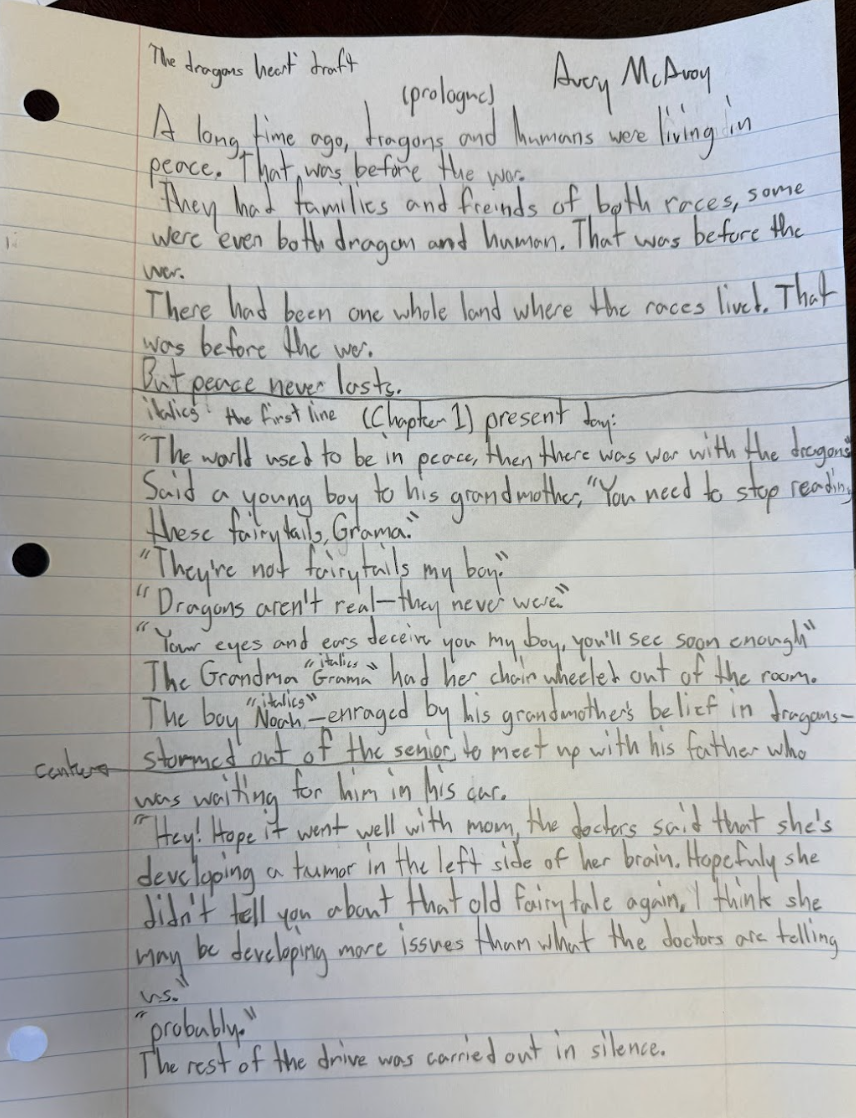 The dragons heart draft
Avery McAvoy
(prologue)
A long time ago, dragons and humans were living in
peace. That was before the war.
They had families and freinds of both races, some
were even both dragon and human. That was before the
war.
There had been one whole land where the races lived. That
was before the war.
But peace never lasts.
italics: the first line (Chapter 1) present day:
"The world used to be in peace, then there was war with the dragons"
Said a young boy to his grandmother, "You need to stop reading
these fairytails, Grama."
"They're not fairytails my boy."
"Dragons aren't real—they never were."
"Your eyes and ears deceive you my boy, you'll see soon enough"
The Grandma "italics" "Grama" had her chair wheeled out of the room.
The boy "italics" "Noah"—enraged by his grandmother's belief in dragons—
stormed out of the senior to meet up with his father who
center
was waiting for him in his car.
"Hey! Hope it went well with mom, the doctors said that she's
developing a tumor in the left side of her brain. Hopefuly she
didn't tell you about that old fairytale again, I think she
may be developing more issues than what the doctors are telling
us."
"probably."
The rest of the drive was carried out in silence.